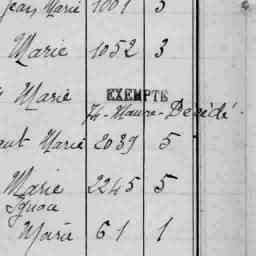 Jean Marie 1001 5
Marie 1052 3
Marie EXEMPTE
Décédé
aut Marie 2037 5
Marie 2245 5
Marie 61 1